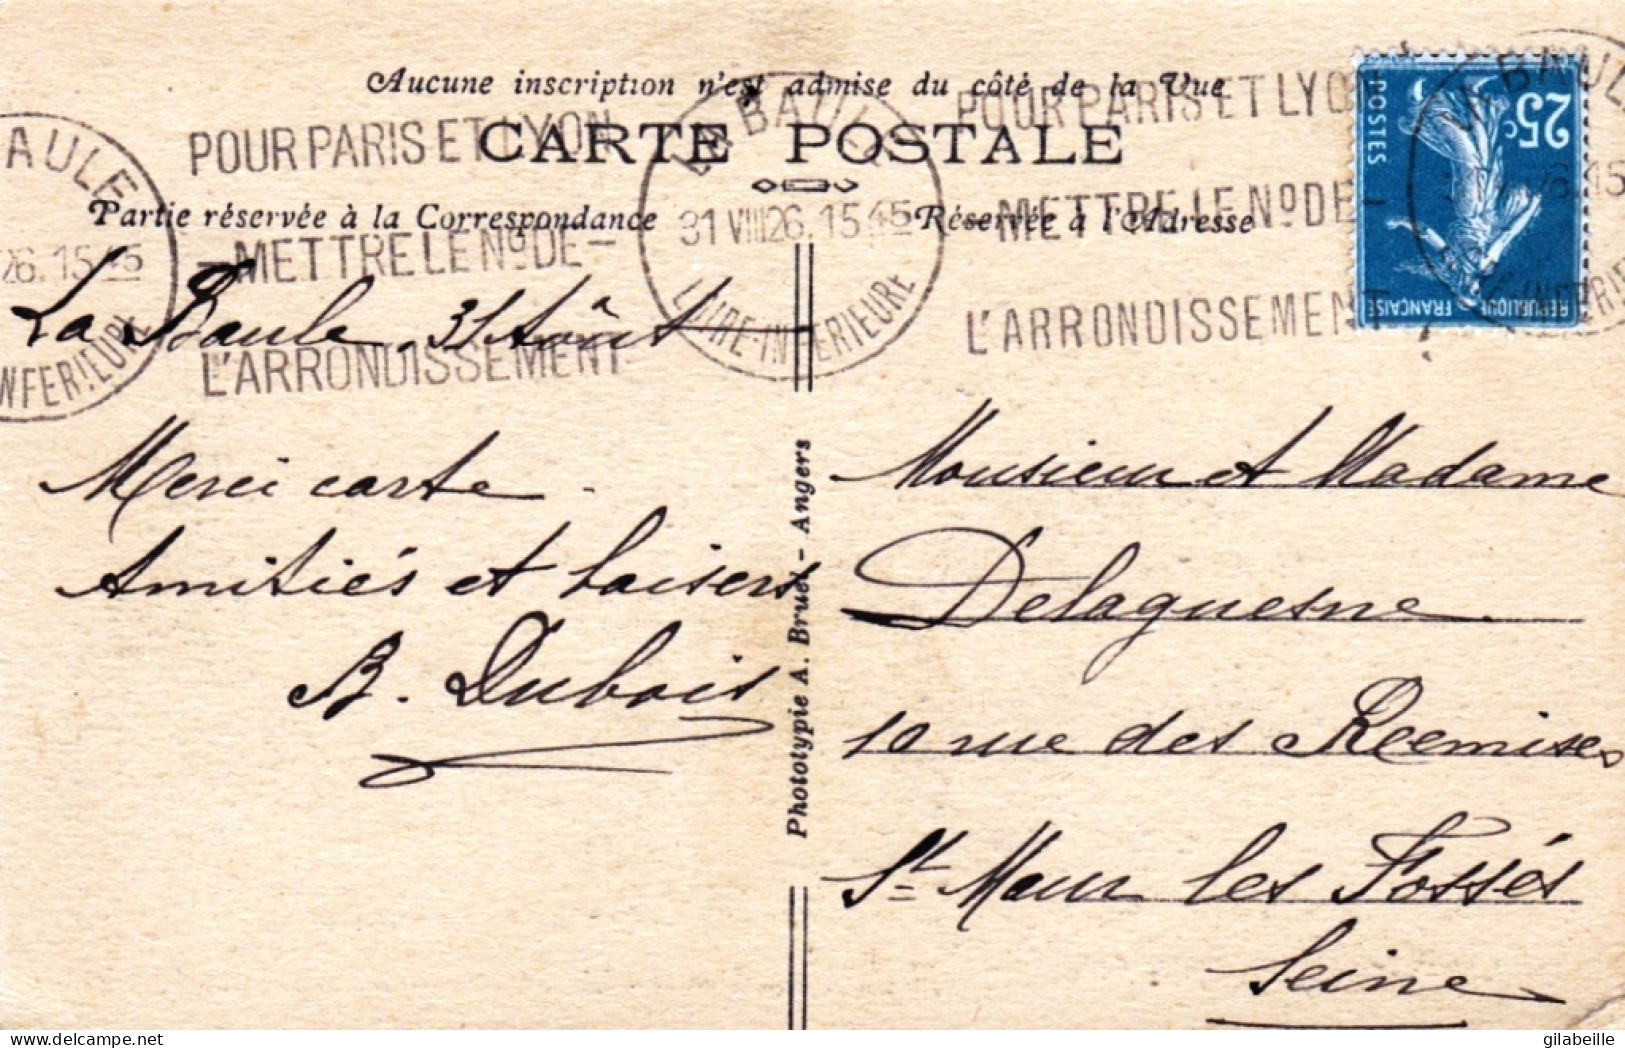 Aucune inscription n'est admise du côté de la Vue
CARTE POSTALE
Partie réservée à la Correspondance
Réservée à l'Adresse
POUR PARIS ET LYON
— METTRE LE No DE —
L'ARRONDISSEMENT
LA BAULE
31 VIII 26. 15 45
LOIRE-INFERIEURE
POUR PARIS ET LYON
METTRE LE No DE —
L'ARRONDISSEMENT
AULE
26. 15 45
INFERIEURE
25c
POSTES
REPUBLIQUE FRANÇAISE
La Baule, 31 Août
Merci carte.
Amitiés et baisers
B. Dubois
Phototypie A. Bruel - Angers
Monsieur et Madame
Delaquesne
10 rue des Reemises
St Maur les Fossés
Seine
delcampe.net
gilabeille